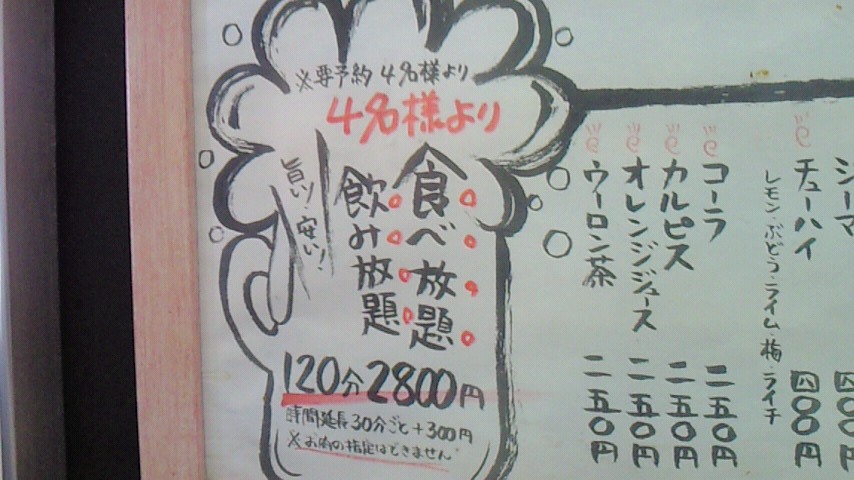 ※要予約 4名様より
4名様より
食べ放題
飲み放題
旨い!安い!
120分2800円
時間延長30分ごと+300円
※お肉の指定はできません
チューハイ 四〇〇円
レモン・ぶどう・ライム・梅・ライチ
コーラ 二五〇円
カルピス 二五〇円
オレンジジュース 二五〇円
ウーロン茶 二五〇円